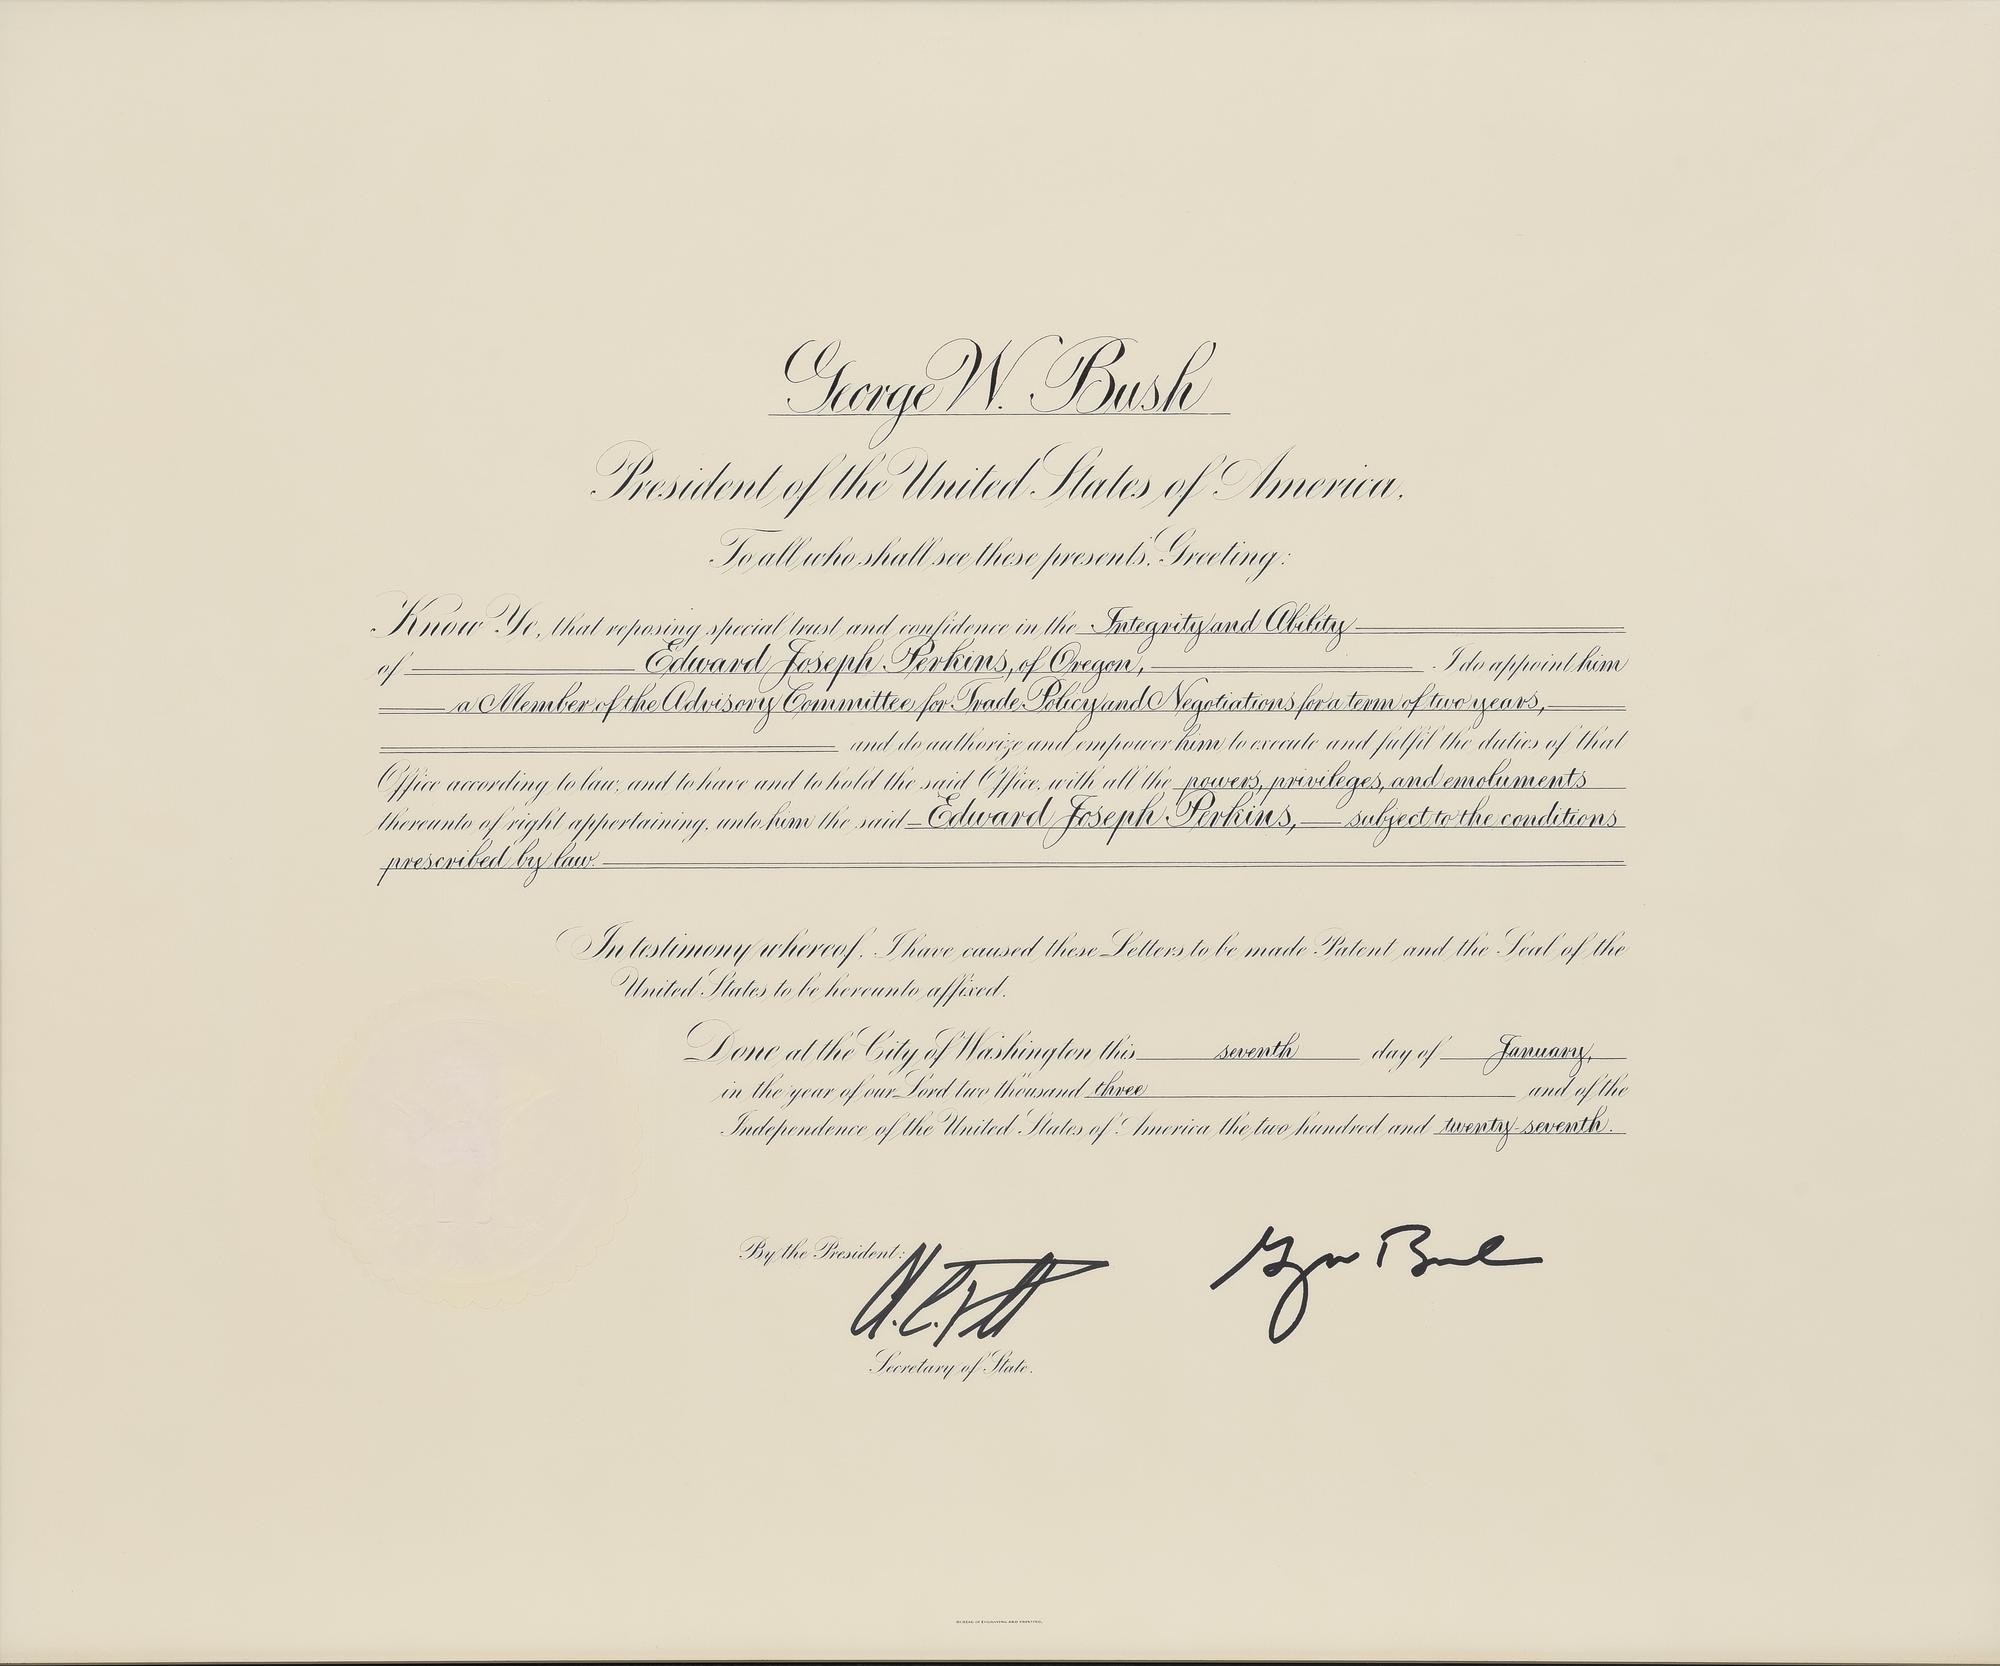 George W. Bush
President of the United States of America.
To all who shall see these presents, Greeting:
Know Ye, that reposing special trust and confidence in the Integrity and Ability
of Edward Joseph Perkins, of Oregon, I do appoint him
a Member of the Advisory Committee for Trade Policy and Negotiations for a term of two years,
and do authorize and empower him to execute and fulfil the duties of that
Office according to law, and to have and to hold the said Office, with all the powers, privileges, and emoluments
thereunto of right appertaining, unto him the said Edward Joseph Perkins, subject to the conditions
prescribed by law.
In testimony whereof, I have caused these Letters to be made Patent and the Seal of the
United States to be hereunto affixed.
Done at the City of Washington this seventh day of January,
in the year of our Lord two thousand three and of the
Independence of the United States of America the two hundred and twenty-seventh.
By the President:
Secretary of State.
BUREAU OF ENGRAVING AND PRINTING.